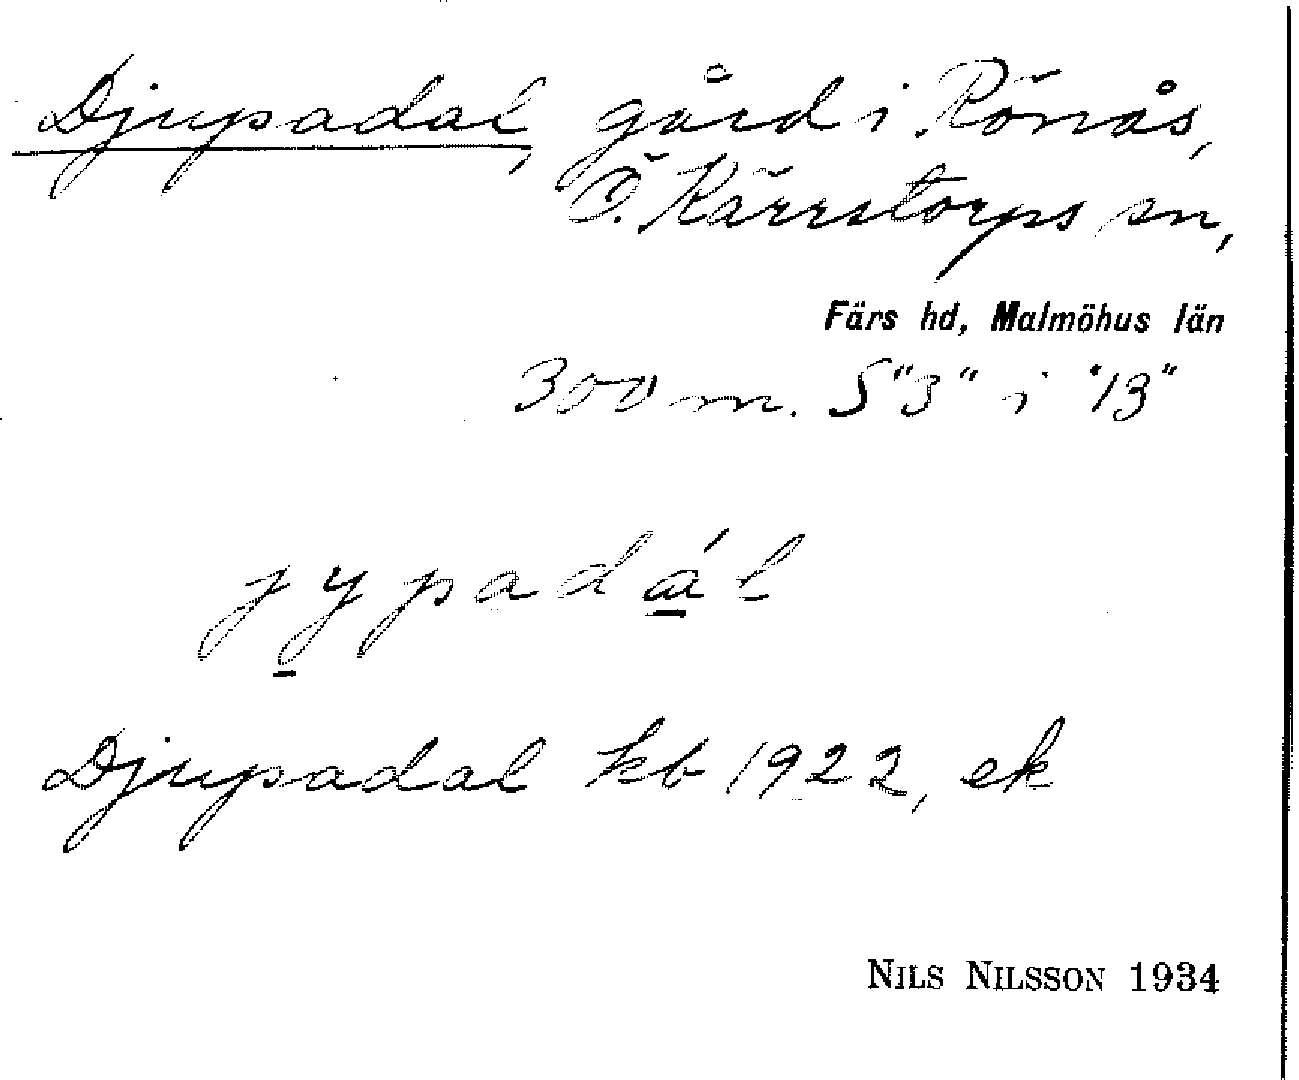 Djupadal, gård i Rönås,
Ö. Kärrstorps sn,
Färs hd, Malmöhus län
300 m. S "3" i "13"
jypadál
Djupadal kb 1922, ek
NILS NILSSON 1934